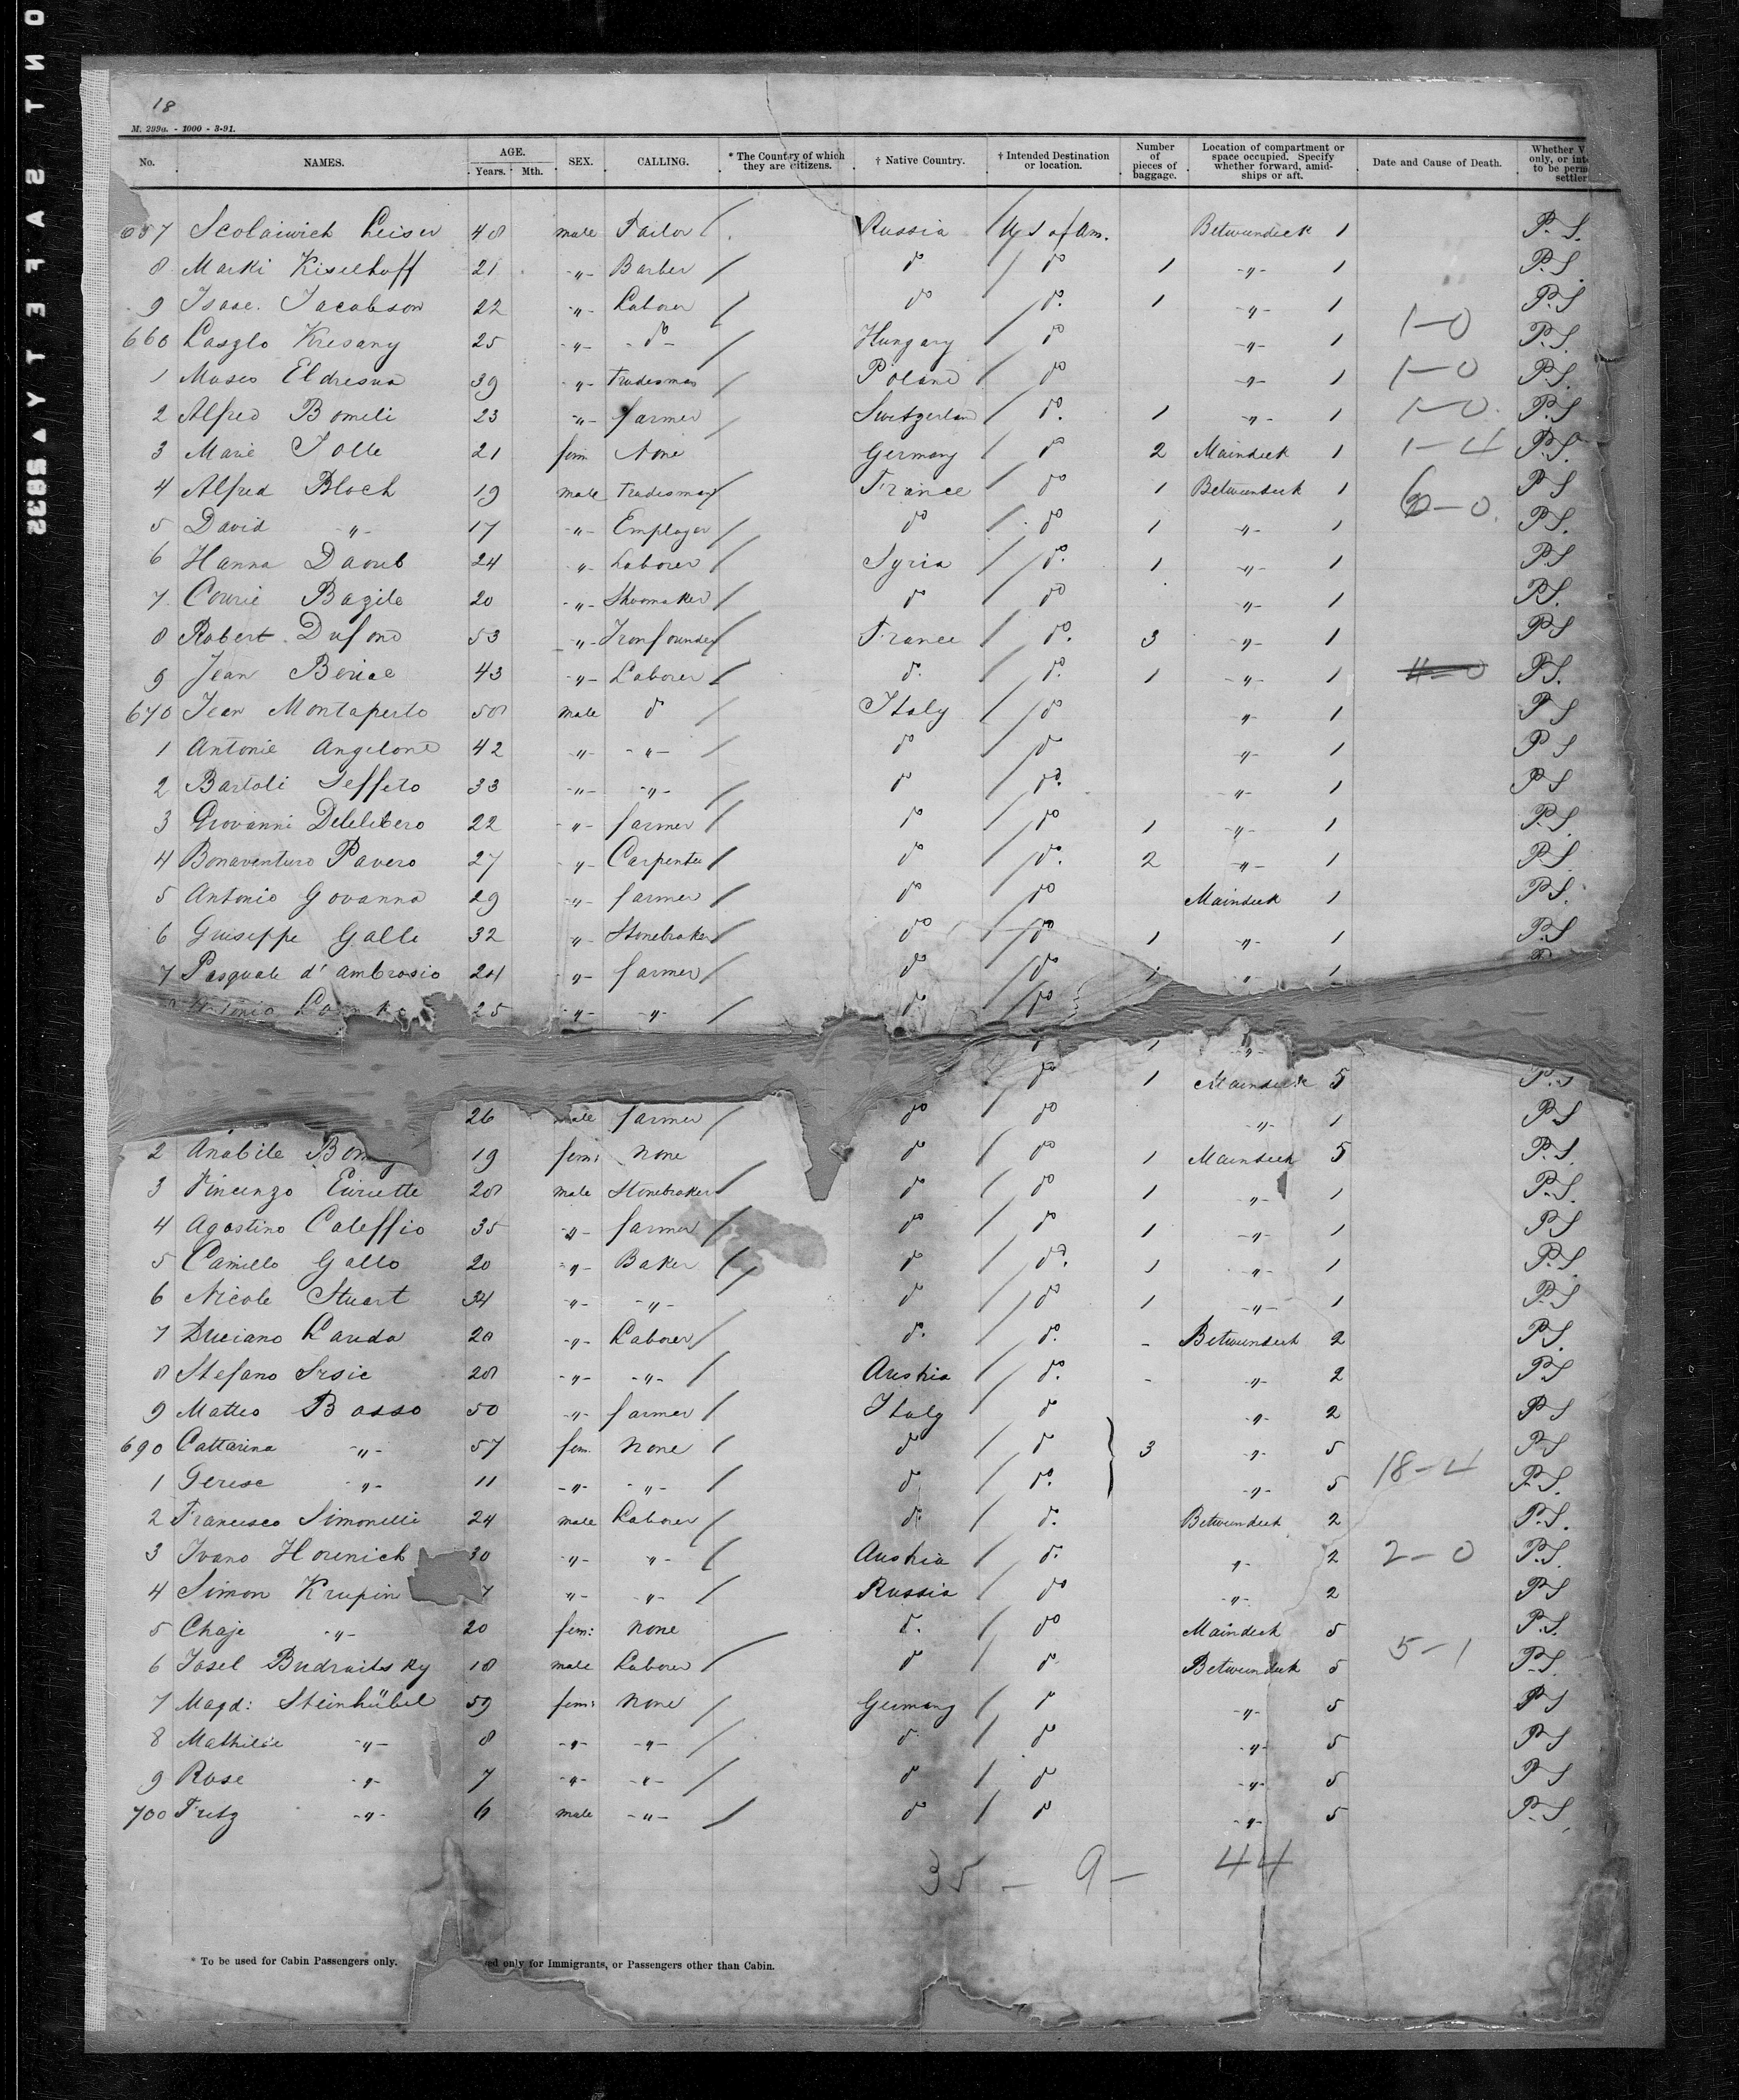 18
M. 299a. - 1000 - 3-91.
No. NAMES. AGE. Years. Mth. SEX. CALLING. * The Country of which they are citizens. † Native Country. † Intended Destination or location. Number of pieces of baggage. Location of compartment or space occupied. Specify whether forward, amidships or aft. Date and Cause of Death. Whether
657 Scolaiwich Leiser 48 male Tailor Russia U S of Am. Betweendeck 1 P.S.
8 Marki Kiselhoff 21 -„- Barber do do 1 -„- 1 P.S.
9 Isaac Jacobson 22 -„- Laborer do do. 1 -„- 1 P.S
660 Laszlo Kresany 25 -„- -do- Hungary do -„- 1 1-0 P.S.
1 Moses 39 -„- Tradesman Poland do -„- 1 1-0 P.S.
2 Alfred Bomeli 23 -„- farmer Switzerland do. 1 -„- 1 1-0. P.S
3 Marie Tolle 21 fem None Germany do 2 Maindeck 1 1-4 P.S.
4 Alfred Bloch 19 male Tradesman France do 1 Betweendeck 1 P S
5 David -„- 17 -„- Employer do do 1 -„- 1 P.S.
6 Hanna Daoub 24 -„- Laborer Syria do. 1 -„- 1 P.S
7 Courie Bazile 20 -„- Shoomaker do do -„- 1 P.S.
8 Robert Dufond 53 -„- Ironfounder France do. 3 -„- 1 P.S
9 Jean 43 -„- Laborer do. do. 1 -„- 1 P.S.
670 Jean Montaperto 50 male do Italy do -„- 1 P S
1 Antonie Angelone 42 -„- -„- do do -„- 1 P S
2 Bartoli Seffeto 33 -„- -„- do do. -„- 1 P S
3 Giovanni Delelibero 22 -„- farmer do do 1 -„- 1 P.S.
4 Bonaventuro Pavero 27 -„- Carpenter do do. 2 -„- 1 P.S
5 Antonio Govanna 29 -„- farmer do do Maindeck 1 P.S.
6 Guiseppe Galle 32 -„- Stonebraker do do 1 -„- 1 P.S
7 Pasquale d'ambrosio 24 -„- farmer do do 1 -„- 1
25 -„- -„- do do
do 1 -„-
do 1 Maindeck 5 P.S
26 male farmer do do -„- 1 P.S
2 Anabile 19 fem: None do do 1 Maindeck 5 P.S.
3 Vincenzo Euriette 28 male Stonebraker do do 1 -„- 1 P.S.
4 Agostino Caleffio 35 -„- farmer do do 1 -„- 1 P.S
5 Camillo Gallo 20 -„- Baker do do. 1 -„- 1 P.S.
6 Nicole Stuart 34 -„- -„- do do 1 -„- 1 P.S
7 Luciano Lauda 20 -„- Laborer do. do. - Betweendeck 2 P.S.
8 Stefano Srsic 28 -„- -„- Austria do. - -„- 2 P.S
9 Matteo Basso 50 -„- farmer Italy do -„- 2 P S
690 Cattarina -„- 57 fem. None do do 3 -„- 5 P.S
1 Gerese -„- 11 -„- -„- do do. -„- 5 18-4 P.S.
2 Francisco Simonelli 24 male Laborer do. do. Betweendeck 2 P.S.
3 Ivano Horenich 30 -„- -„- Austria do. -„- 2 2-0 P.S.
4 Simon Krupin 7 -„- -„- Russia do -„- 2 P.S
5 Chaje -„- 20 fem: None do. do Maindeck 5 P.S.
6 Josel Budraitsky 18 male Laborer do do Betweendeck 5 5-1 P.S.
7 Magd: Steinhübel 59 fem: None Germany do -„- 5 P S
8 Mathilde -„- 8 -„- -„- do do -„- 5 P S
9 Rose -„- 7 -„- -„- do do -„- 5 P S
700 Fritz -„- 6 male -„- do do -„- 5 P.S.
35 - 9 - 44
* To be used for Cabin Passengers only. only for Immigrants, or Passengers other than Cabin.